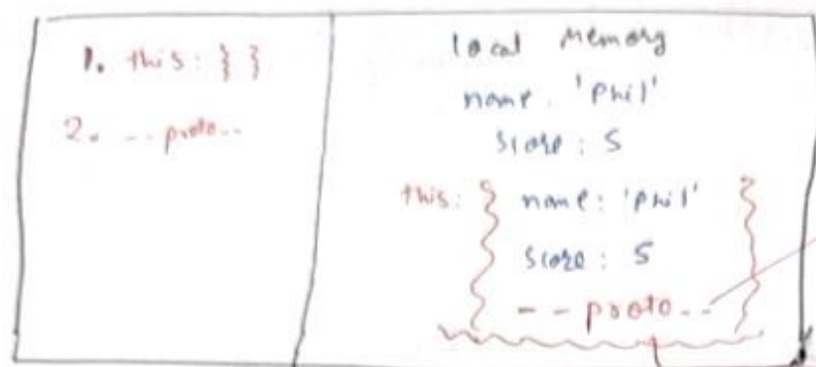 1. this: { }
2. --proto--
local memory
name: 'Phil'
score: 5
this: { name: 'Phil' }
score: 5
--proto--